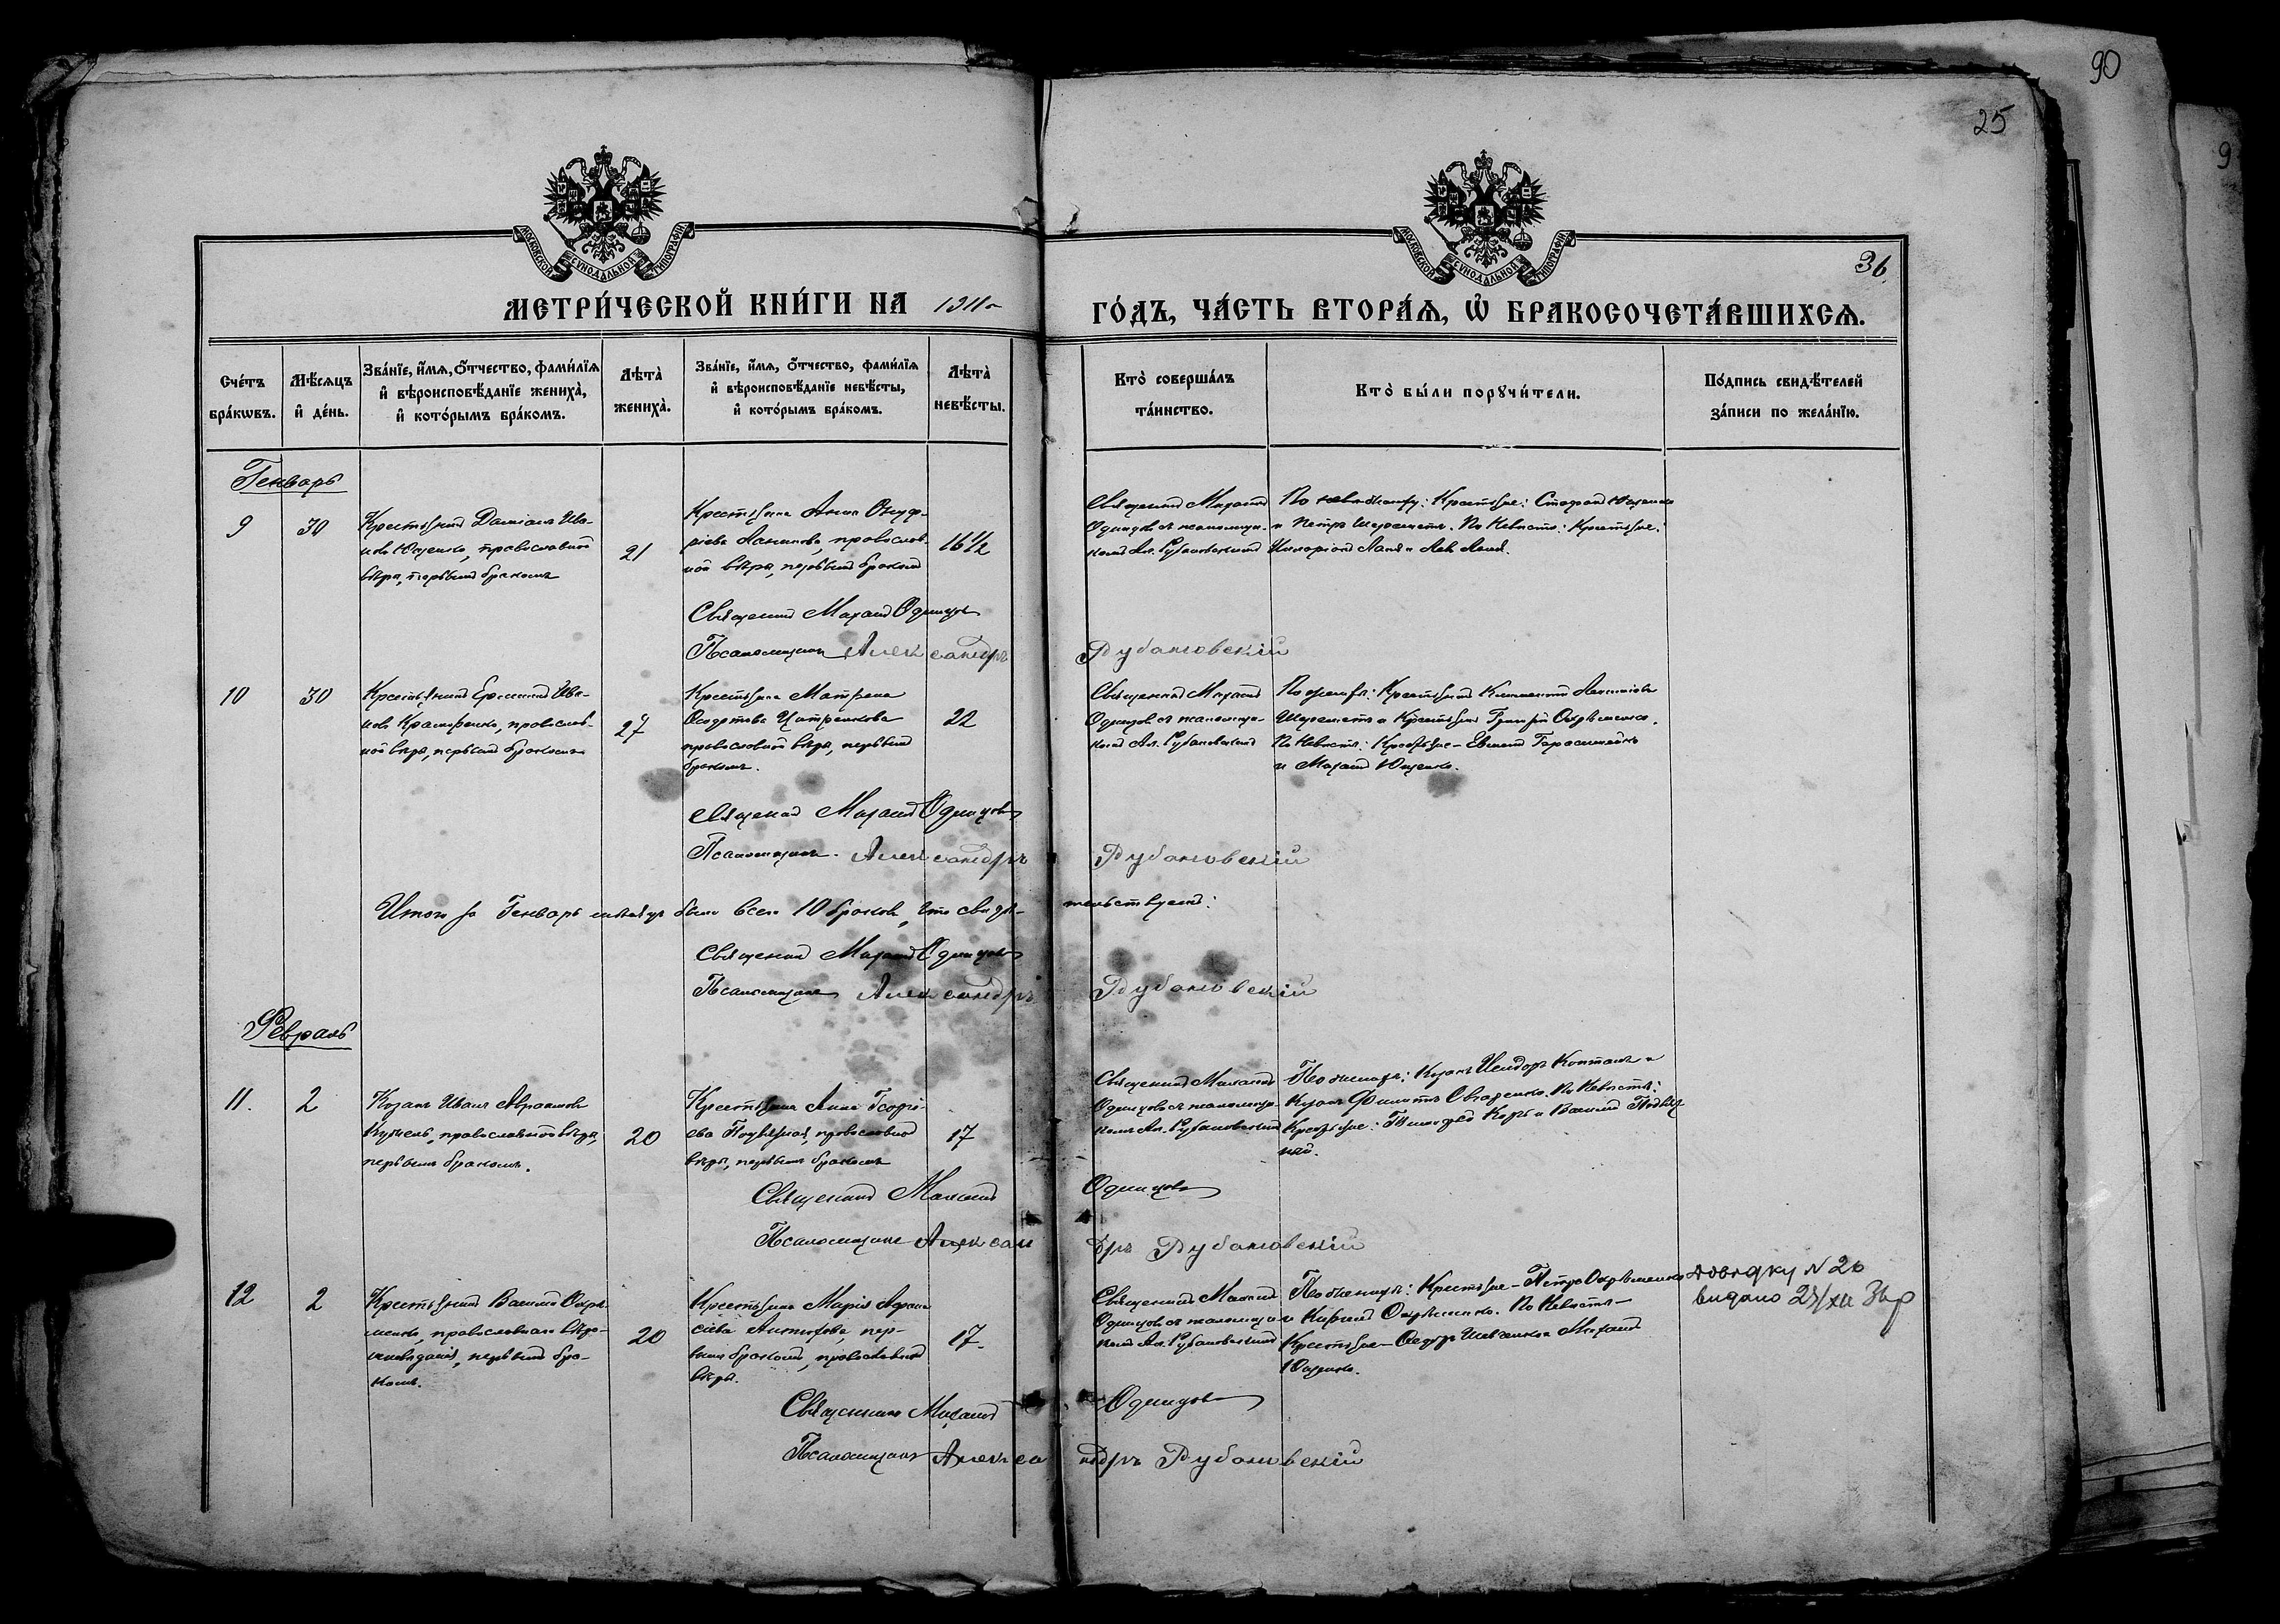 90
25
9
МОСКОВСКОЙ СѴНОДАЛЬНОЙ ТИПОГРАФІИ
МОСКОВСКОЙ СѴНОДАЛЬНОЙ ТИПОГРАФІИ
36.
МЕТРИ́ЧЕСКОЙ КНИ́ГИ НА 1911 г
ГО́ДЪ, ЧА́СТЬ ВТОРА́Ѧ, Ѡ҆ БРАКОСОЧЕТА́ВШИХСѦ.
Сче́тъ
бра́кѡвъ.
Мѣ́сѧцъ
и҆ де́нь.
Зва́нїе, и҆́мѧ, ѻ҆́тчество, фами́лїѧ
и҆ вѣроисповѣ́данїе жениха̀,
и҆ кото́рымъ бра́комъ.
Лѣта̀
жениха̀.
Зва́нїе, и҆́мѧ, ѻ҆́тчество, фами́лїѧ
и҆ вѣроисповѣ́данїе невѣ́сты,
и҆ кото́рымъ бра́комъ.
Лѣта̀
невѣ́сты.
Кто̀ соверша́лъ
та́инство.
Кто̀ бы́ли порꙋчи́тели.
По́дпись свидѣ́телей
за́писи по жела́нїю.
Генварь
9
30
Крестьянинъ Даміанъ Ива-
новъ Ющенко, православной
вѣры, первымъ бракомъ
21
Крестьянка Анна Онуф-
ріева, православ-
ной вѣры, первымъ бракомъ
16½
Священникъ Михаилъ
Одинцовъ съ псаломщи-
комъ Ал. Рубановскимъ
По жениху: Крестьяне: Стефанъ Ющенко
и Петръ Шереметъ. По невѣстѣ: Крестьяне:
Илларіонъ и Левъ
Священникъ Михаилъ Одинцовъ
Псаломщикъ Александръ Рубановскій
10
30
Крестьянинъ Ива-
новъ, православ-
ной вѣры, первымъ бракомъ
27
Крестьянка Матрена
Ѳедотова
православной вѣры, первымъ
бракомъ.
22
Священникъ Михаилъ
Одинцовъ съ псаломщи-
комъ Ал. Рубановскимъ
По женихѣ: Крестьянинъ Климентій
Шереметъ и Крестьянинъ Григорій Охрѣменко.
По невѣстѣ: Крестьяне – Евгеній
и Михаилъ Ющенко.
Священникъ Михаилъ Одинцовъ
Псаломщикъ Александръ Рубановскій
Итого за Генварь мѣсяцъ было всего 10 браковъ, что свидѣ-
тельствуемъ:
Священникъ Михаилъ Одинцовъ
Псаломщикъ Александръ Рубановскій
Февраль
11.
2
Козакъ Иванъ Авраамовъ
православной вѣры,
первымъ бракомъ.
20
Крестьянка Анна Георгі-
ева Подвязная, православной
вѣры, первымъ бракомъ
17
Священникъ Михаилъ
Одинцовъ съ псаломщи-
комъ Ал. Рубановскимъ
По женихѣ: Козакъ Исидоръ и
Козакъ Филиппъ Овчаренко. По невѣстѣ:
Крестьяне: Тимоѳей и Василій Подвяз-
ной.
Священникъ Михаилъ Одинцовъ
Псаломщикъ Александръ Рубановскій
12
2
Крестьянинъ Василій Охрѣ-
менко, православнаго вѣро-
исповѣданія, первымъ бра-
комъ.
20
Крестьянка Марія Аѳана-
сіева, пер-
вымъ бракомъ, православной
вѣры.
17.
Священникъ Михаилъ
Одинцовъ съ псаломщи-
комъ Ал. Рубановскимъ
По женихѣ: Крестьяне – Петръ Охрѣменко
и Кириллъ Охрѣменко. По невѣстѣ –
Крестьяне – Ѳедоръ Шевченко и Михаилъ
Ющенко.
довідку № 20
видано 23/XII 36 р
Священникъ Михаилъ Одинцовъ
Псаломщикъ Александръ Рубановскій